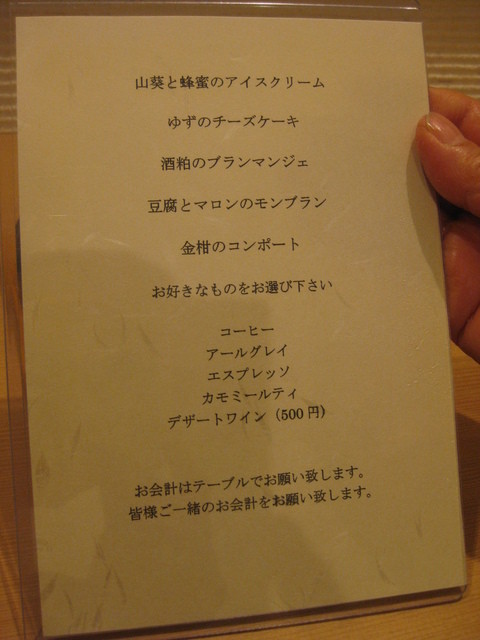 山葵と蜂蜜のアイスクリーム
ゆずのチーズケーキ
酒粕のブランマンジェ
豆腐とマロンのモンブラン
金柑のコンポート
お好きなものをお選び下さい
コーヒー
アールグレイ
エスプレッソ
カモミールティ
デザートワイン（500円）
お会計はテーブルでお願い致します。
皆様ご一緒のお会計をお願い致します。